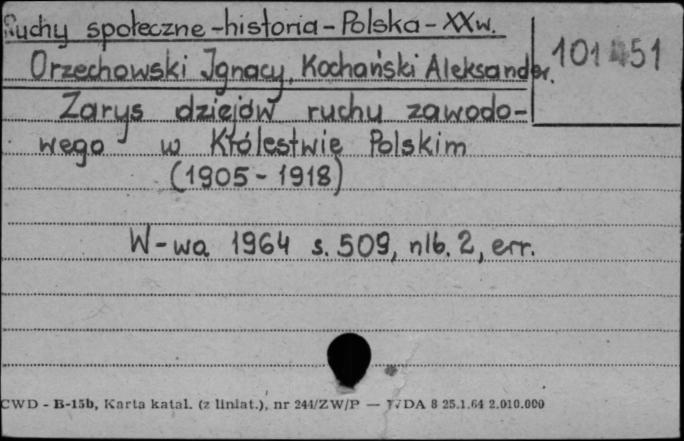 Ruchy społeczne-historia-Polska-XXw.
Orzechowski Ignacy, Kochański Aleksander.
101 451
Zarys dziejów ruchu zawodo-
wego w Królestwie Polskim
(1905-1918)
W-wa 1964 s. 509, nlb. 2, err.
CWD - B-15b, Karta katal. (z liniat.), nr 244/ZW/P — WDA 8 25.1.64 2.010.000